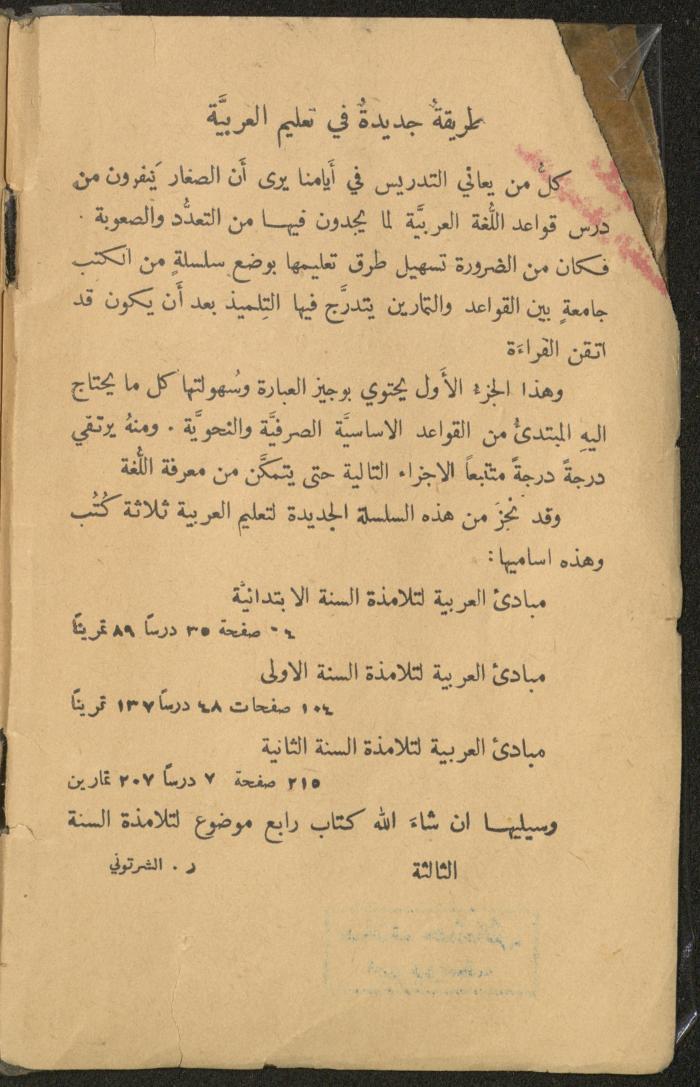 طريقةٌ جديدةٌ في تعليم العربيَّة
كلُّ من يعاني التدريس في أَيامنا يرى أَن الصغار يَنفرون من
درس قواعد اللُّغة العربيَّة لما يجدون فيهـا من التعدُّد والصعوبة .
فكان من الضرورة تسهيل طرق تعليمها بوضع سلسلةٍ من الكتب
جامعةٍ بين القواعد والتمارين يتدرَّج فيها التِلميذ بعد أَن يكون قد
اتقن القراءَة
وهذا الجزءُ الأَول يحتوي بوجيز العبارة وسُهولتها كل ما يحتاج
اليهِ المبتدئُ من القواعد الاساسيَّة الصرفيَّة والنحويَّة . ومنهُ يرتقي
درجةً درجةً متابعاً الاجزاء التالية حتى يتمكَّن من معرفة اللُّغة
وقد نجَزَ من هذه السلسلة الجديدة لتعليم العربية ثلاثة كُتُب
وهذه اساميها :
مبادئ العربية لتلامذة السنة الابتدائيَّة
صفحة ٣٥ درساً ٨٩ تمريناً
مبادئ العربية لتلامذة السنة الاولى
١٠٤ صفحات ٤٨ درساً ١٣٧ تمريناً
مبادئ العربية لتلامذة السنة الثانية
٢١٥ صفحة ٧ درساً ٢٠٧ تمارين
وسيليهـا ان شاءَ الله كتاب رابع موضوع لتلامذة السنة
الثالثة
ر . الشرتوني